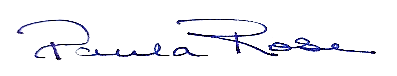 Paula Rose